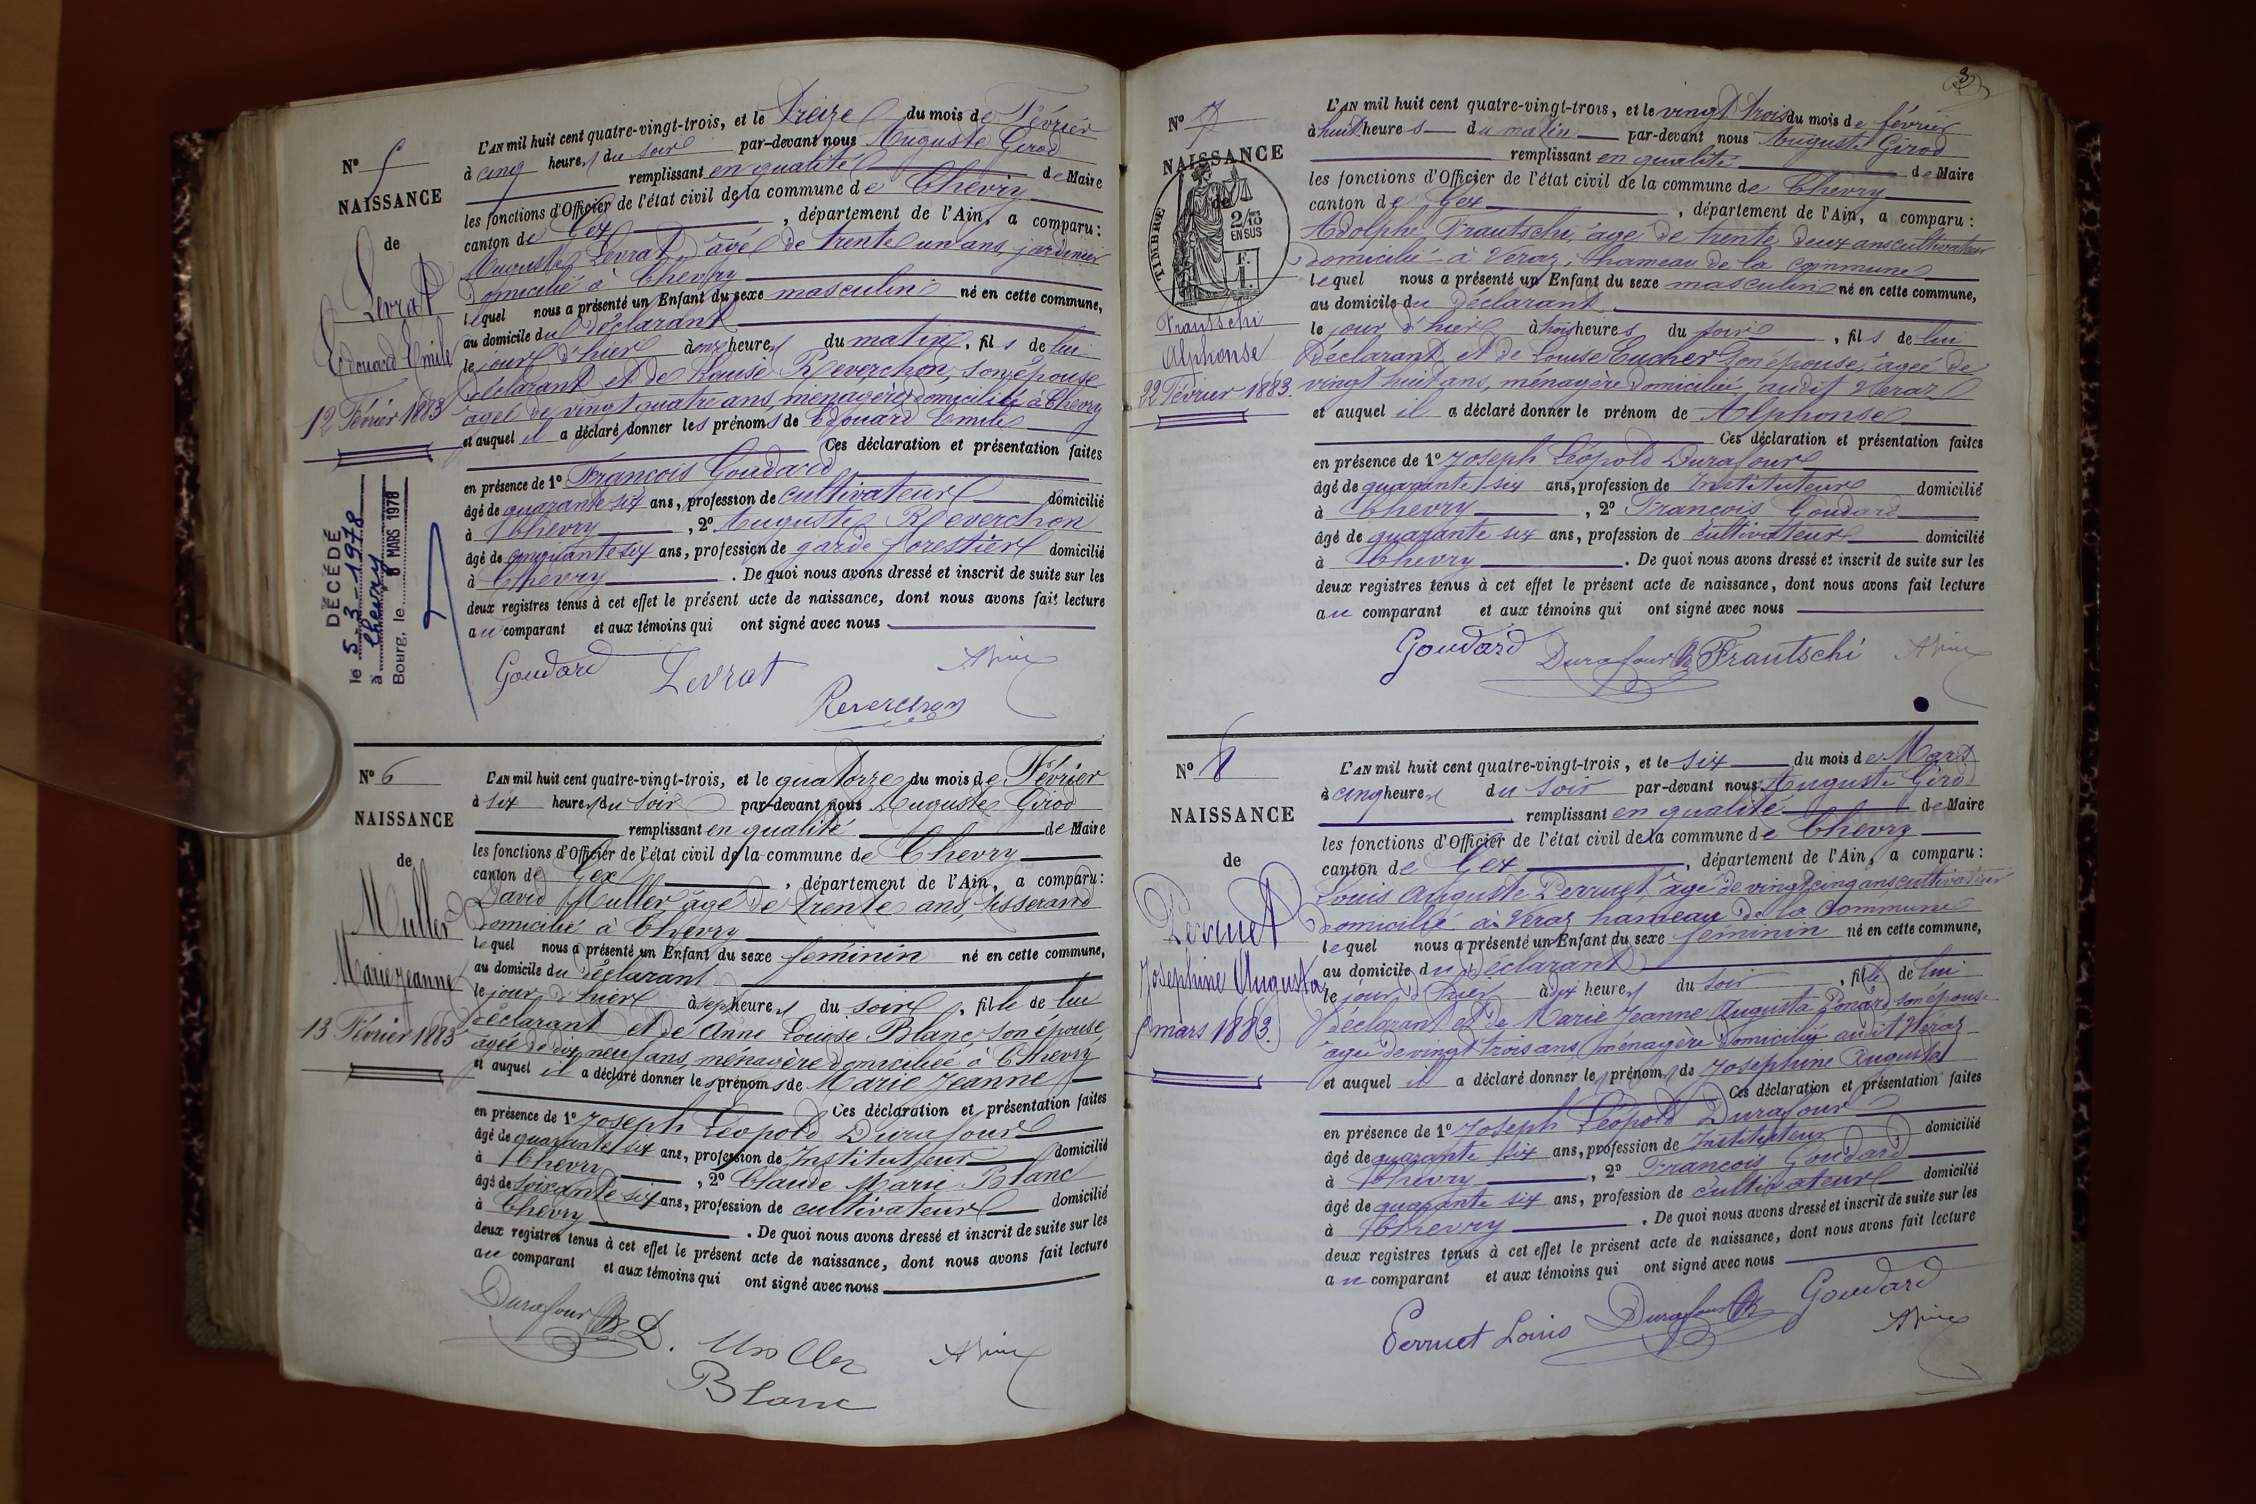 N° 5
NAISSANCE
de
Levrat
Edouard Emile
12 Février 1883
DÉCÉDÉ
le 5-3-1978
à Chevry
Bourg, le 8 MARS 1978
L'AN mil huit cent quatre-vingt-trois, et le Treize du mois de Février
à cinq heures du soir par-devant nous Auguste Girod
remplissant en qualité de Maire
les fonctions d'Officier de l'état civil de la commune de Chevry
canton de Gex, département de l'Ain, a comparu :
Auguste Levrat, âgé de trente un ans, jardinier
domicilié à Chevry
lequel nous a présenté un Enfant du sexe masculin né en cette commune,
au domicile du déclarant
le jour d'hier à onze heures du matin, fils de lui
déclarant et de Louise Reverchon, son épouse
âgée de vingt quatre ans, ménagère domiciliée à Chevry
et auquel il a déclaré donner les prénoms de Edouard Emile
Ces déclaration et présentation faites
en présence de 1° François Goudard
âgé de quarante six ans, profession de cultivateur domicilié
à Chevry, 2° Auguste Reverchon
âgé de cinquante six ans, profession de garde forestier domicilié
à Chevry. De quoi nous avons dressé et inscrit de suite sur les
deux registres tenus à cet effet le présent acte de naissance, dont nous avons fait lecture
au comparant et aux témoins qui ont signé avec nous
Goudard Levrat
Reverchon
N° 6
NAISSANCE
de
Muller
Marie Jeanne
13 Février 1883
L'AN mil huit cent quatre-vingt-trois, et le quatorze du mois de Février
à six heures du soir par-devant nous Auguste Girod
remplissant en qualité de Maire
les fonctions d'Officier de l'état civil de la commune de Chevry
canton de Gex, département de l'Ain, a comparu :
David Muller âgé de trente ans, tisserand
domicilié à Chevry
lequel nous a présenté un Enfant du sexe féminin né en cette commune,
au domicile du déclarant
le jour d'hier à sept heures du soir, fille de lui
déclarant et de Anne Louise Blanc, son épouse,
âgée de dix neuf ans, ménagère domiciliée à Chevry
et auquel il a déclaré donner les prénoms de Marie Jeanne
Ces déclaration et présentation faites
en présence de 1° Joseph Léopold Durafour
âgé de quarante six ans, profession de Instituteur domicilié
à Chevry, 2° Claude Marie Blanc
âgé de soixante six ans, profession de cultivateur domicilié
à Chevry. De quoi nous avons dressé et inscrit de suite sur les
deux registres tenus à cet effet le présent acte de naissance, dont nous avons fait lecture
au comparant et aux témoins qui ont signé avec nous
Durafour D. Muller
Blanc
3
N° 7
NAISSANCE
de
TIMBRE
2/10
EN SUS
Frautschi
Alphonse
22 Février 1883.
L'AN mil huit cent quatre-vingt-trois, et le vingt trois du mois de février
à huit heures du matin par-devant nous Auguste Girod
remplissant en qualité de Maire
les fonctions d'Officier de l'état civil de la commune de Chevry
canton de Gex, département de l'Ain, a comparu :
Adolphe Frautschi, âgé de trente deux ans cultivateur
domicilié à Veraz, hameau de la commune
lequel nous a présenté un Enfant du sexe masculin né en cette commune,
au domicile du déclarant
le jour d'hier à trois heures du soir, fils de lui
déclarant et de Louise Eucher son épouse, âgée de
vingt huit ans, ménagère domiciliée audit Veraz
et auquel il a déclaré donner le prénom de Alphonse
Ces déclaration et présentation faites
en présence de 1° Joseph Léopold Durafour
âgé de quarante six ans, profession de Instituteur domicilié
à Chevry, 2° François Goudard
âgé de quarante six ans, profession de cultivateur domicilié
à Chevry. De quoi nous avons dressé et inscrit de suite sur les
deux registres tenus à cet effet le présent acte de naissance, dont nous avons fait lecture
au comparant et aux témoins qui ont signé avec nous
Goudard Durafour Frautschi
N° 8
NAISSANCE
de
Perruet
Josephine Augusta
mars 1883.
L'AN mil huit cent quatre-vingt-trois, et le six du mois de Mars
à cinq heures du soir par-devant nous Auguste Girod
remplissant en qualité de Maire
les fonctions d'Officier de l'état civil de la commune de Chevry
canton de Gex, département de l'Ain, a comparu :
Louis Auguste Perruet, âgé de vingt cinq ans cultivateur
domicilié à Veraz hameau de la commune
lequel nous a présenté un Enfant du sexe féminin né en cette commune,
au domicile du déclarant
le jour d'hier à dix heures du soir, fille de lui
déclarant et de Marie Jeanne Augusta Ponard son épouse
âgée de vingt trois ans ménagère domiciliée audit Véraz
et auquel il a déclaré donner les prénoms de Josephine Augusta
Ces déclaration et présentation faites
en présence de 1° Joseph Léopold Durafour
âgé de quarante six ans, profession de Instituteur domicilié
à Chevry, 2° François Goudard
âgé de quarante six ans, profession de cultivateur domicilié
à Chevry. De quoi nous avons dressé et inscrit de suite sur les
deux registres tenus à cet effet le présent acte de naissance, dont nous avons fait lecture
au comparant et aux témoins qui ont signé avec nous
Perruet Louis Durafour Goudard